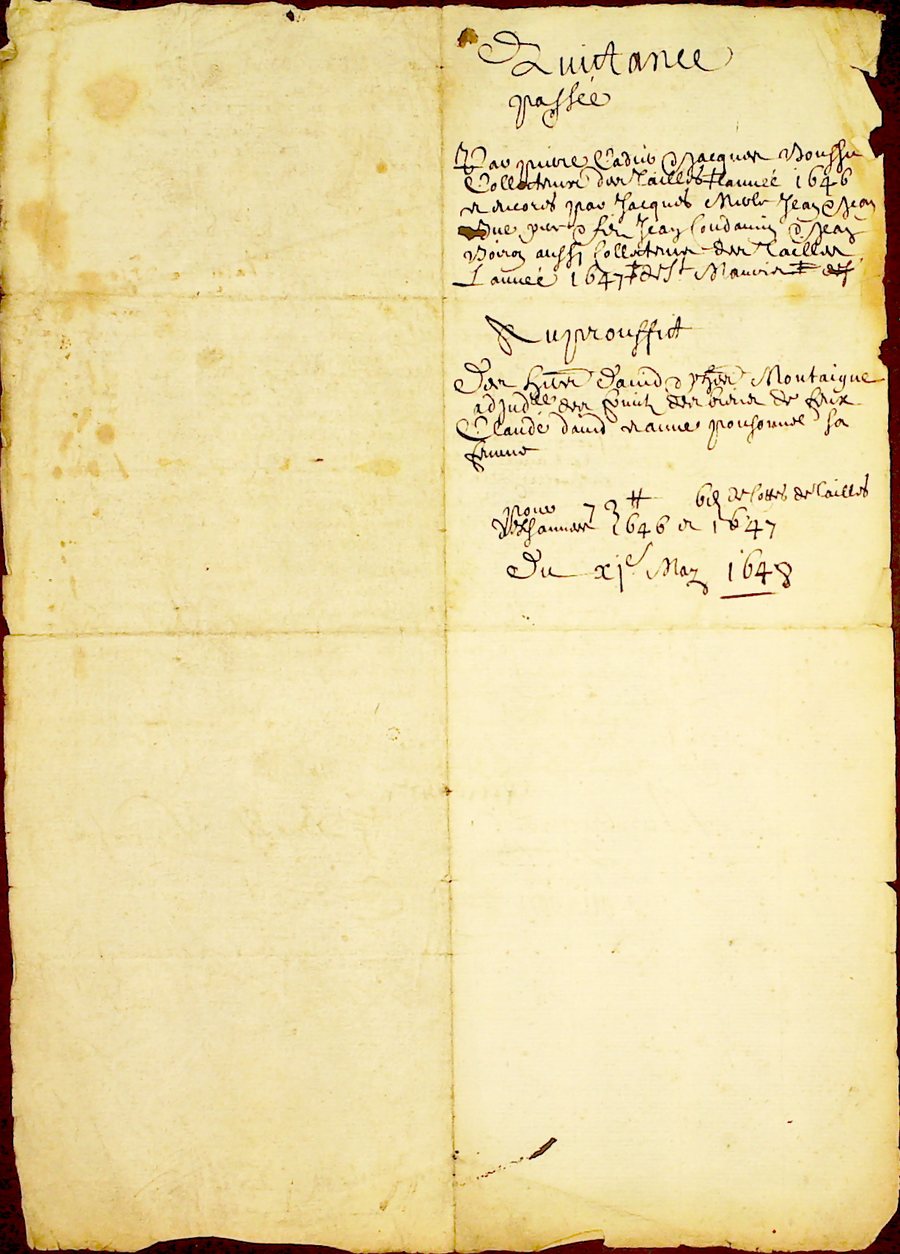 Quictance
passée
Par pierre Cadier & Jacques Bousson
Collecteurs des Tailles lannée 1646
et encores par Jacques Jean & Jean
pere & filz Jean Coudamin & Jean
Boiron aussj Collecteurs des Tailles
Lannée 1647 de St Maurice
Au prouffict
Des sieurs David & Montaigue
adjudres des fruictz des biens de feux
Claude david et anne ponsonnel sa
femme
pour 73 # 6d de Cottes de Tailles
des annees 1646 et 1647
Du xje May 1648